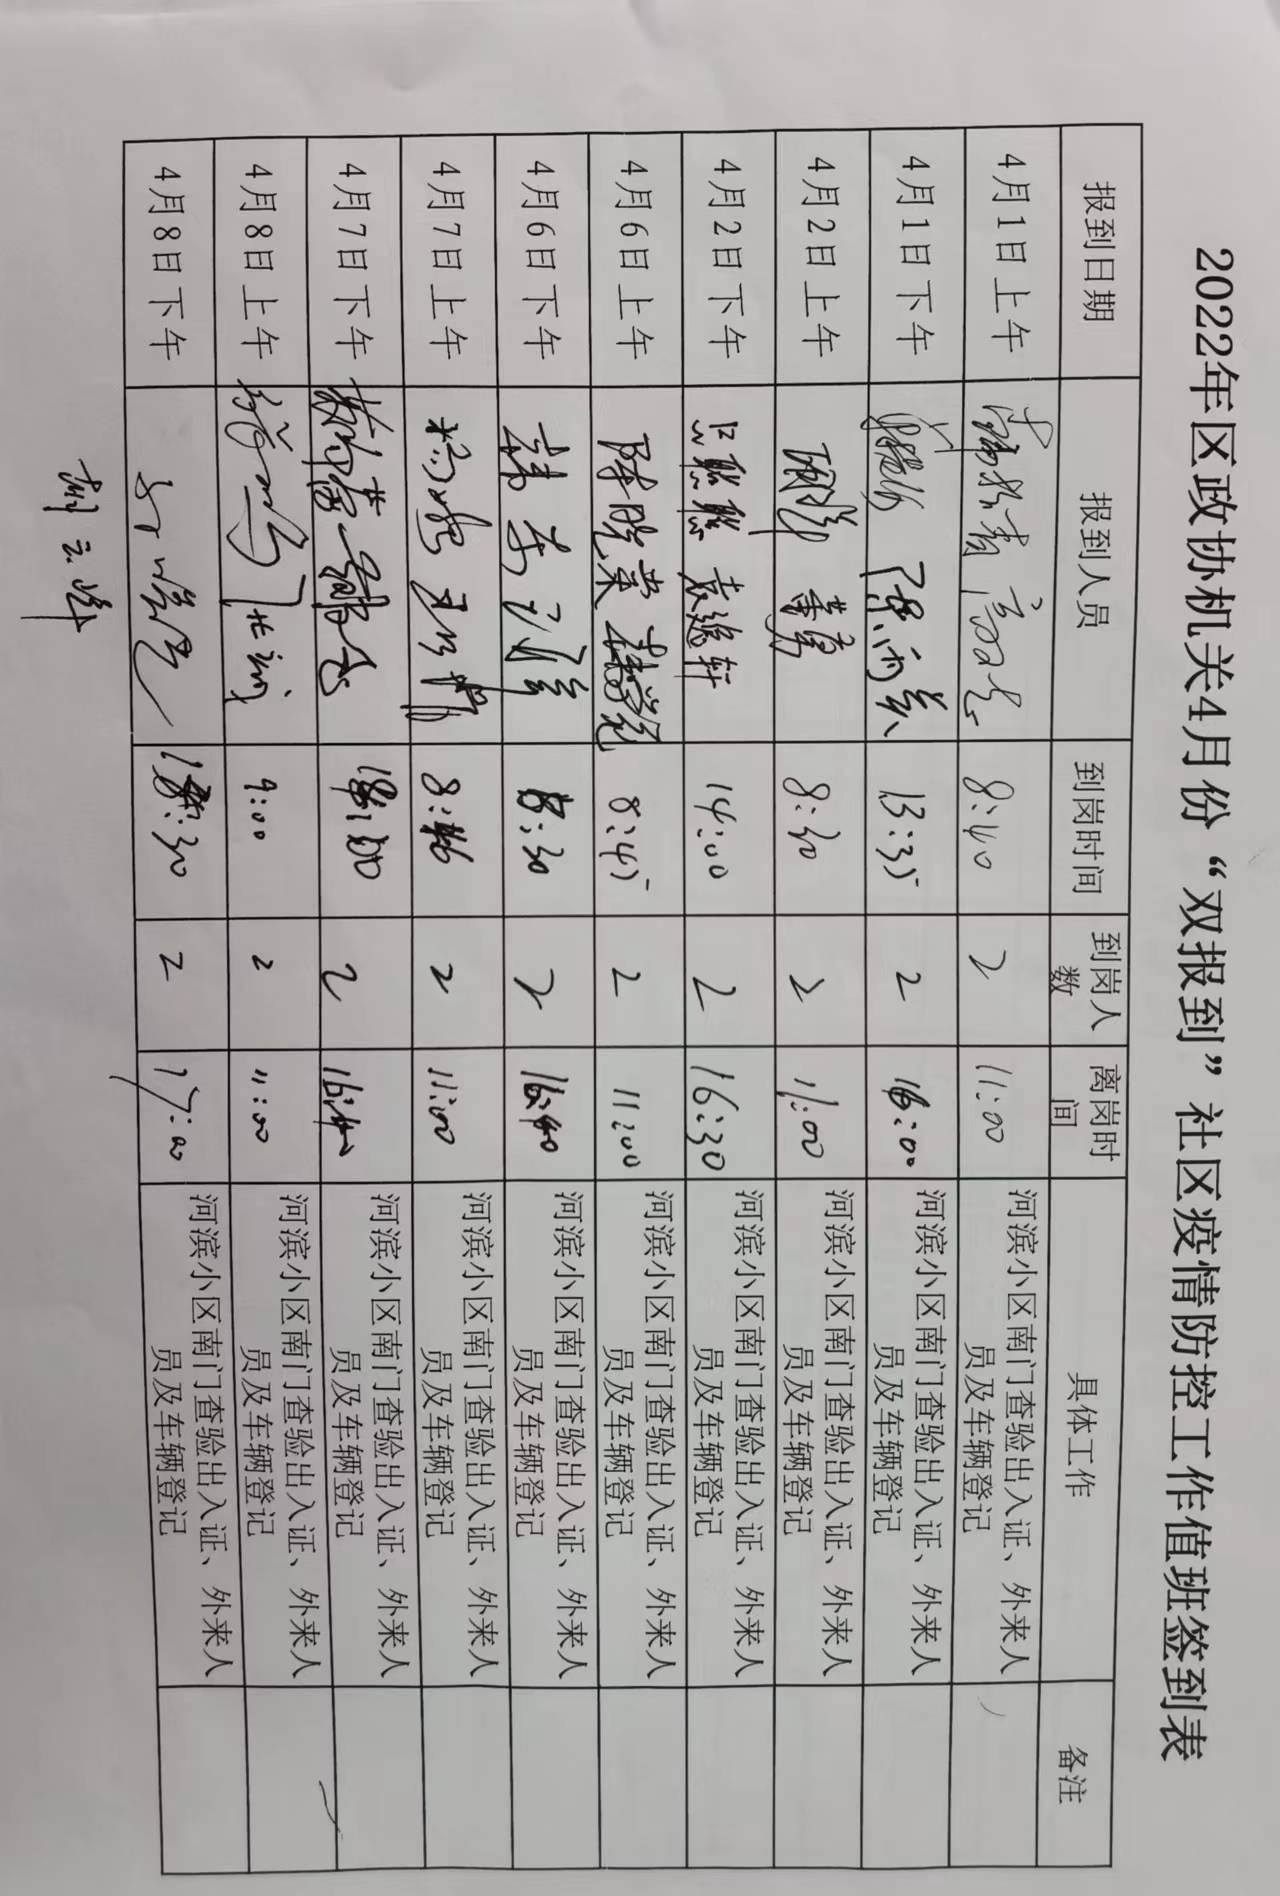 2022年区政协机关4月份“双报到”社区疫情防控工作值班签到表
报到日期 报到人员 到岗时间 到岗人数 离岗时间 具体工作 备注
4月1日上午 8:40 2 11:00 河滨小区南门查验出入证、外来人
员及车辆登记
4月1日下午 13:35 2 16:00 河滨小区南门查验出入证、外来人
员及车辆登记
4月2日上午 8:30 2 11:00 河滨小区南门查验出入证、外来人
员及车辆登记
4月2日下午 袁逸轩 14:00 2 16:30 河滨小区南门查验出入证、外来人
员及车辆登记
4月6日上午 陈晓荣 8:45 2 11:00 河滨小区南门查验出入证、外来人
员及车辆登记
4月6日下午 2 16:40 河滨小区南门查验出入证、外来人
员及车辆登记
4月7日上午 2 11:00 河滨小区南门查验出入证、外来人
员及车辆登记
4月7日下午 2 河滨小区南门查验出入证、外来人
员及车辆登记
4月8日上午 9:00 2 11:00 河滨小区南门查验出入证、外来人
员及车辆登记
4月8日下午 2 17:00 河滨小区南门查验出入证、外来人
员及车辆登记